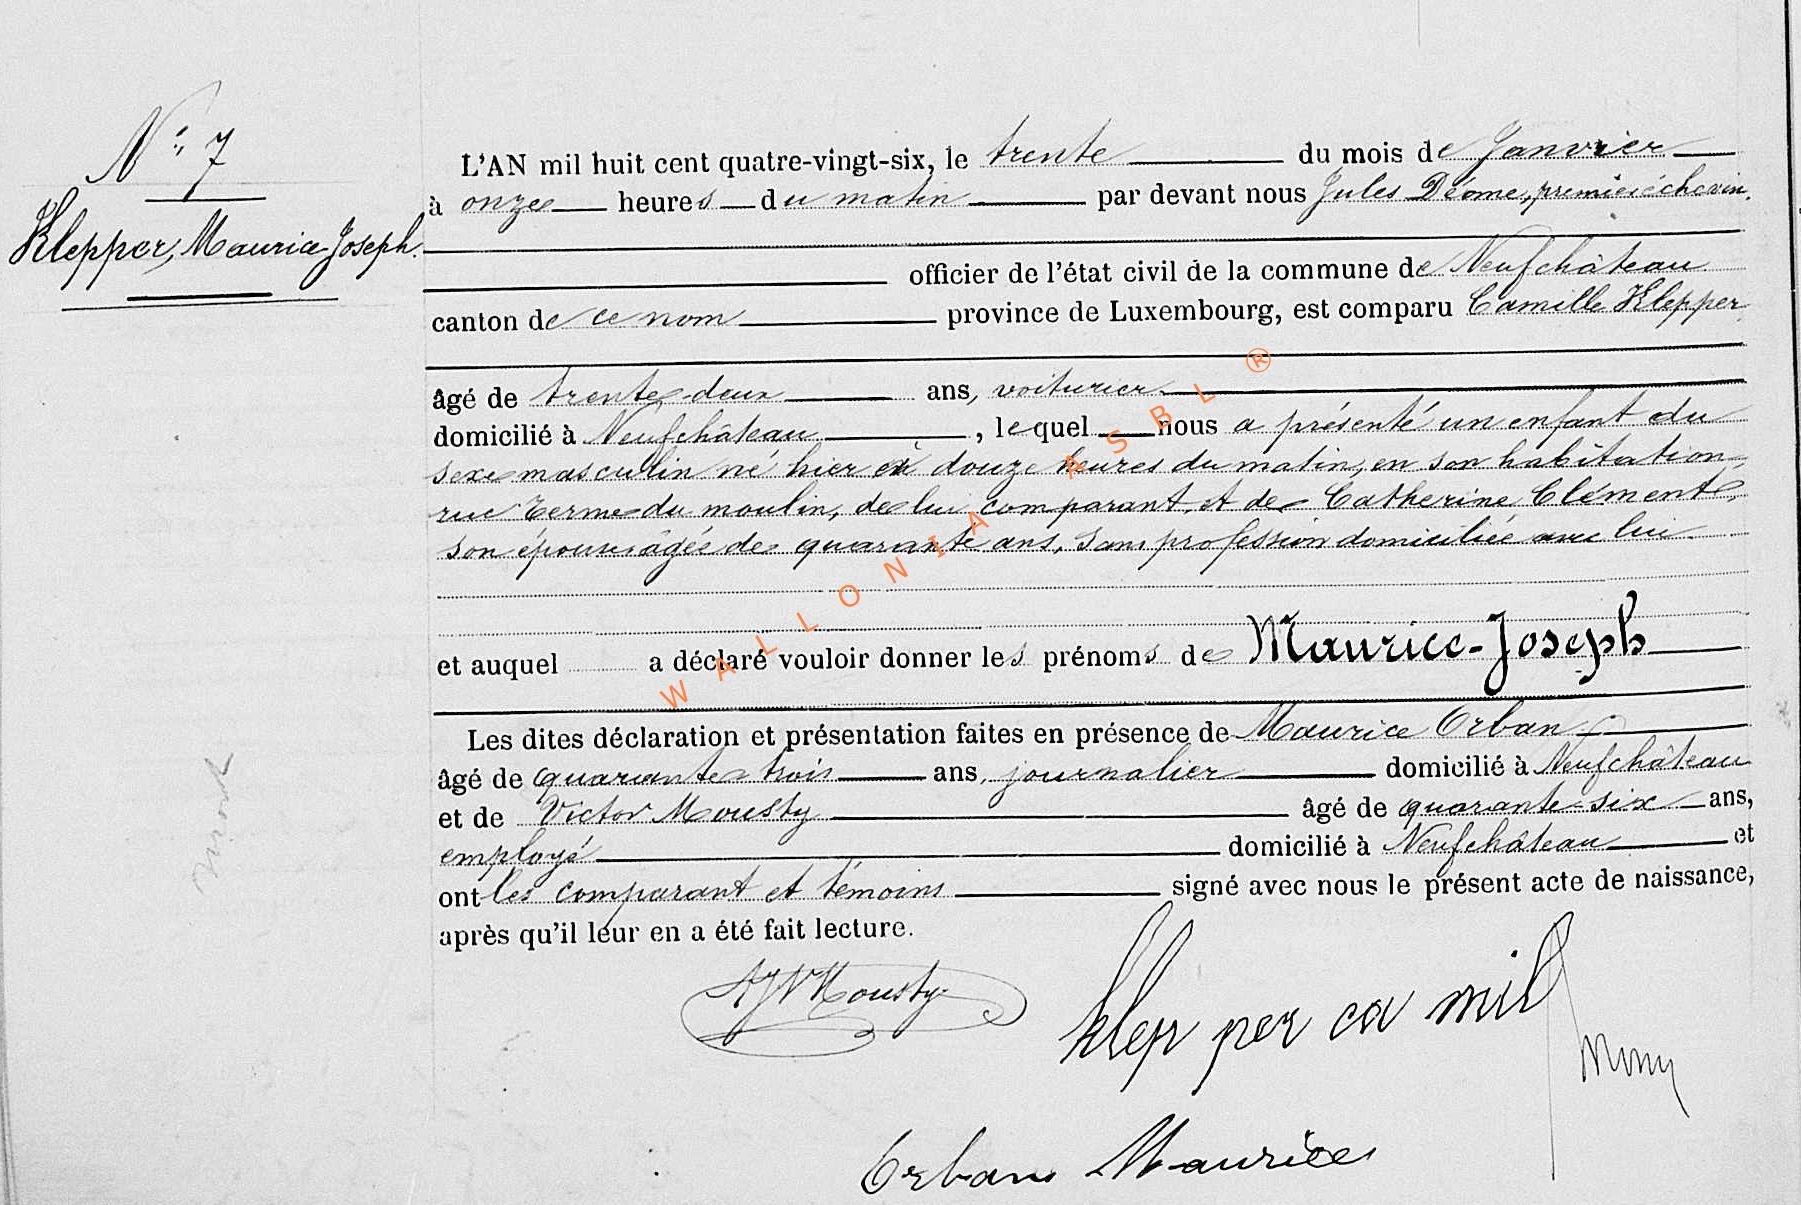 N° 7
Klepper, Maurice Joseph.
L'AN mil huit cent quatre-vingt-six, le trente du mois de Janvier
à onze heures du matin par devant nous Jules Déome, premier échevin,
officier de l'état civil de la commune de Neufchâteau
canton de ce nom province de Luxembourg, est comparu Camille Klepper,
âgé de trente-deux ans, voiturier
domicilié à Neufchâteau, lequel nous a présenté un enfant du
sexe masculin né hier à douze heures du matin, en son habitation,
rue Terme du moulin, de lui comparant, et de Catherine Clément,
son épouse âgée de quarante ans, sans profession domiciliée avec lui.
et auquel a déclaré vouloir donner les prénoms de Maurice-Joseph
Les dites déclaration et présentation faites en présence de Maurice Orban
âgé de quarante trois ans, journalier domicilié à Neufchâteau
et de Victor Mousty âgé de quarante-six ans,
employé domicilié à Neufchâteau et
ont les comparant et témoins signé avec nous le présent acte de naissance,
après qu'il leur en a été fait lecture.
Mousty
klep per ca mil
Orban Maurice
WALLONIA ASBL ®